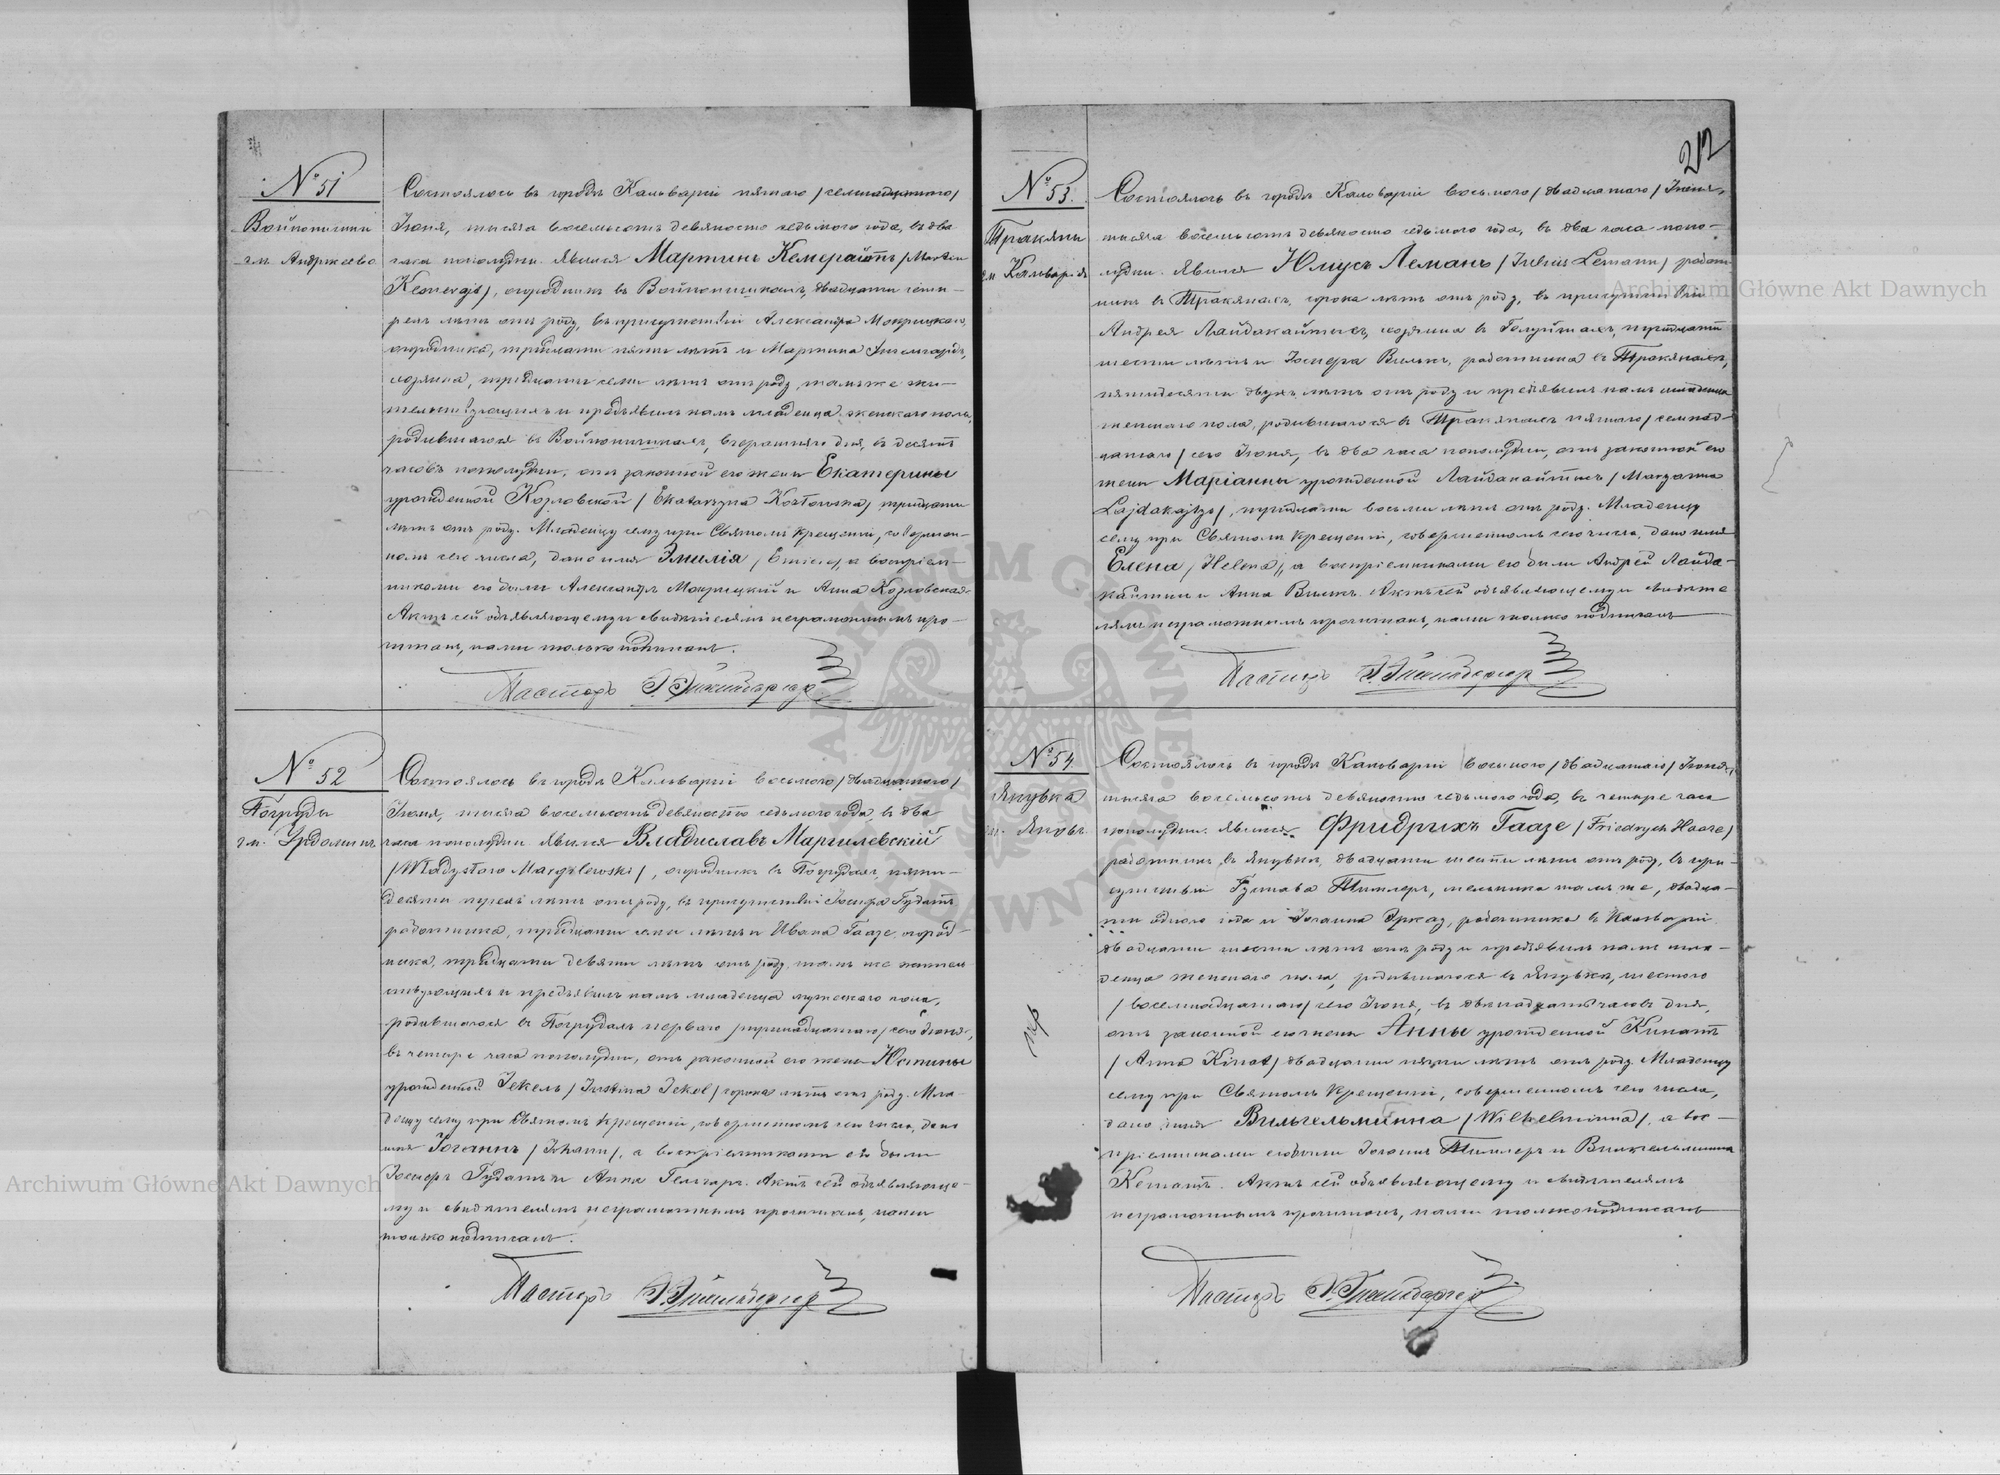 № 51
Войпонишки
гм. Андржеево
Состоялось въ городѣ Кальваріи пятаго /семнадцатаго/
Іюня, тысяча восемьсотъ девяносто седьмого года, въ два
часа пополудни. Явился Мартинъ Кемерайтъ /Martin
Kemerajt/, огородникъ въ Войпонишкахъ, двадцати четы-
рехъ лѣтъ отъ роду, въ присутствіи Александра Мокрицкаго,
огородника, тридцати пяти лѣтъ и Мартина
хозяина, тридцати семи лѣтъ отъ роду, тамъ же жи-
тельствующихъ и предъявилъ намъ младенца женскаго пола,
родившагося въ Войпонишкахъ, вчерашняго дня, въ десять
часовъ пополудни, отъ законной его жены Екатерины
урожденной Козловской /Ekatarzyna Kozłowska/ тридцати
лѣтъ отъ роду. Младенцу сему при Святомъ Крещеніи, совершен-
номъ сего числа, дано имя Эмилія /Emilia/, а воспріем-
никами его были Александръ Мокрицкій и Анна Козловская.
Актъ сей объявляющему и свидѣтелямъ неграмотнымъ про-
читанъ, нами только подписанъ.
Пасторъ
№ 52
Погруды
гм. Урдоминъ
Состоялось въ городѣ Кальваріи восьмого /двадцатаго/
Іюня, тысяча восемьсотъ девяносто седьмого года, въ два
часа пополудни. Явился Владиславъ Маргилевскій
/Władysław Margilewski/, огородникъ въ Погрудахъ, пяти-
десяти трехъ лѣтъ отъ роду, въ присутствіи Іосифа Гудатъ,
работника, тридцати семи лѣтъ и Ивана Гаазе, огород-
ника, тридцати девяти лѣтъ отъ роду, тамъ же жител
ствующихъ и предъявилъ намъ младенца мужескаго пола,
родившагося въ Погрудахъ перваго /тринадцатаго/ сего Іюня,
въ четыре часа пополудни, отъ законной его жены Юстины
урожденной Іекель /Justina Jekel/ сорока лѣтъ отъ роду. Мла-
денцу сему при Святомъ Крещеніи, совершенномъ сего числа, дано
имя Іоганнъ /Johann/, а воспріемниками его были
Іосифъ Гудатъ и Анна Актъ сей объявляюще-
му и свидѣтелямъ неграмотнымъ прочитанъ, нами
только подписанъ.
Пасторъ
212
№ 53.
Тракяны
гм. Кальварія
Состоялось въ городѣ Кальваріи восьмого /двадцатаго/ Іюня,
тысяча восемьсотъ девяносто седьмого года, въ два часа попо-
лудни. Явился Юлiусъ Леманъ /Julius Lemann/ работ
никъ въ Тракянахъ, сорока лѣтъ отъ роду, въ присутствіи
Андрея Лайдакайтисъ, хозяина въ тридцати
шести лѣтъ и Іосифа Вилькъ, работника въ Тракянахъ,
пятидесяти двухъ лѣтъ отъ роду и предъявилъ намъ младенца
женскаго пола, родившагося въ Тракянахъ пятаго /семнад-
цатаго/ сего Іюня, въ два часа пополудни, отъ законной его
жены Маріанны урожденной Лайдакайтисъ /Maryanna
Lajdakajtys/, тридцати восьми лѣтъ отъ роду. Младенцу
сему при Святомъ Крещеніи, совершенномъ сего числа, дано имя
Елена /Helena/, а воспріемниками его были Андрей Лайда-
кайтисъ и Анна Вилькъ. Актъ сей объявляющему и свидѣте
лямъ неграмотнымъ прочитанъ, нами только подписанъ
Пасторъ
№ 54
Янувка
гм. Яновъ
Состоялось въ городѣ Кальваріи восьмого /двадцатаго/ Іюня,
тысяча восемьсотъ девяносто седьмого года, въ четыре часа
пополудни. Явился Фридрихъ Гаазе /Friedrych Haase/
работникъ въ Янувкѣ, двадцати шести лѣтъ отъ роду, въ при-
сутствіи Густава мельника тамъ же, двадца-
ти одного года и Іоганна работника въ Кальваріи
двадцати шести лѣтъ отъ роду и предъявилъ намъ мла-
денца женскаго пола, родившагося въ Янувкѣ, шестого
/восемнадцатаго/ сего Іюня, въ двѣнадцать часовъ дня,
отъ законной его жены Анны урожденной Кинатъ
/Anna Kinat/ двадцати пяти лѣтъ отъ роду. Младенцу
сему при Святомъ Крещеніи, совершенномъ сего числа,
дано имя Вильгельмина /Wilhelmina/, а вос-
пріемниками его были Іоганъ и Вильгельмина
Актъ сей объявляющему и свидѣтелямъ
неграмотнымъ прочитанъ, нами только подписанъ
Пасторъ
Archiwum Główne Akt Dawnych
Archiwum Główne Akt Dawnych
ARCHIWUM GŁÓWNE AKT DAWNYCH